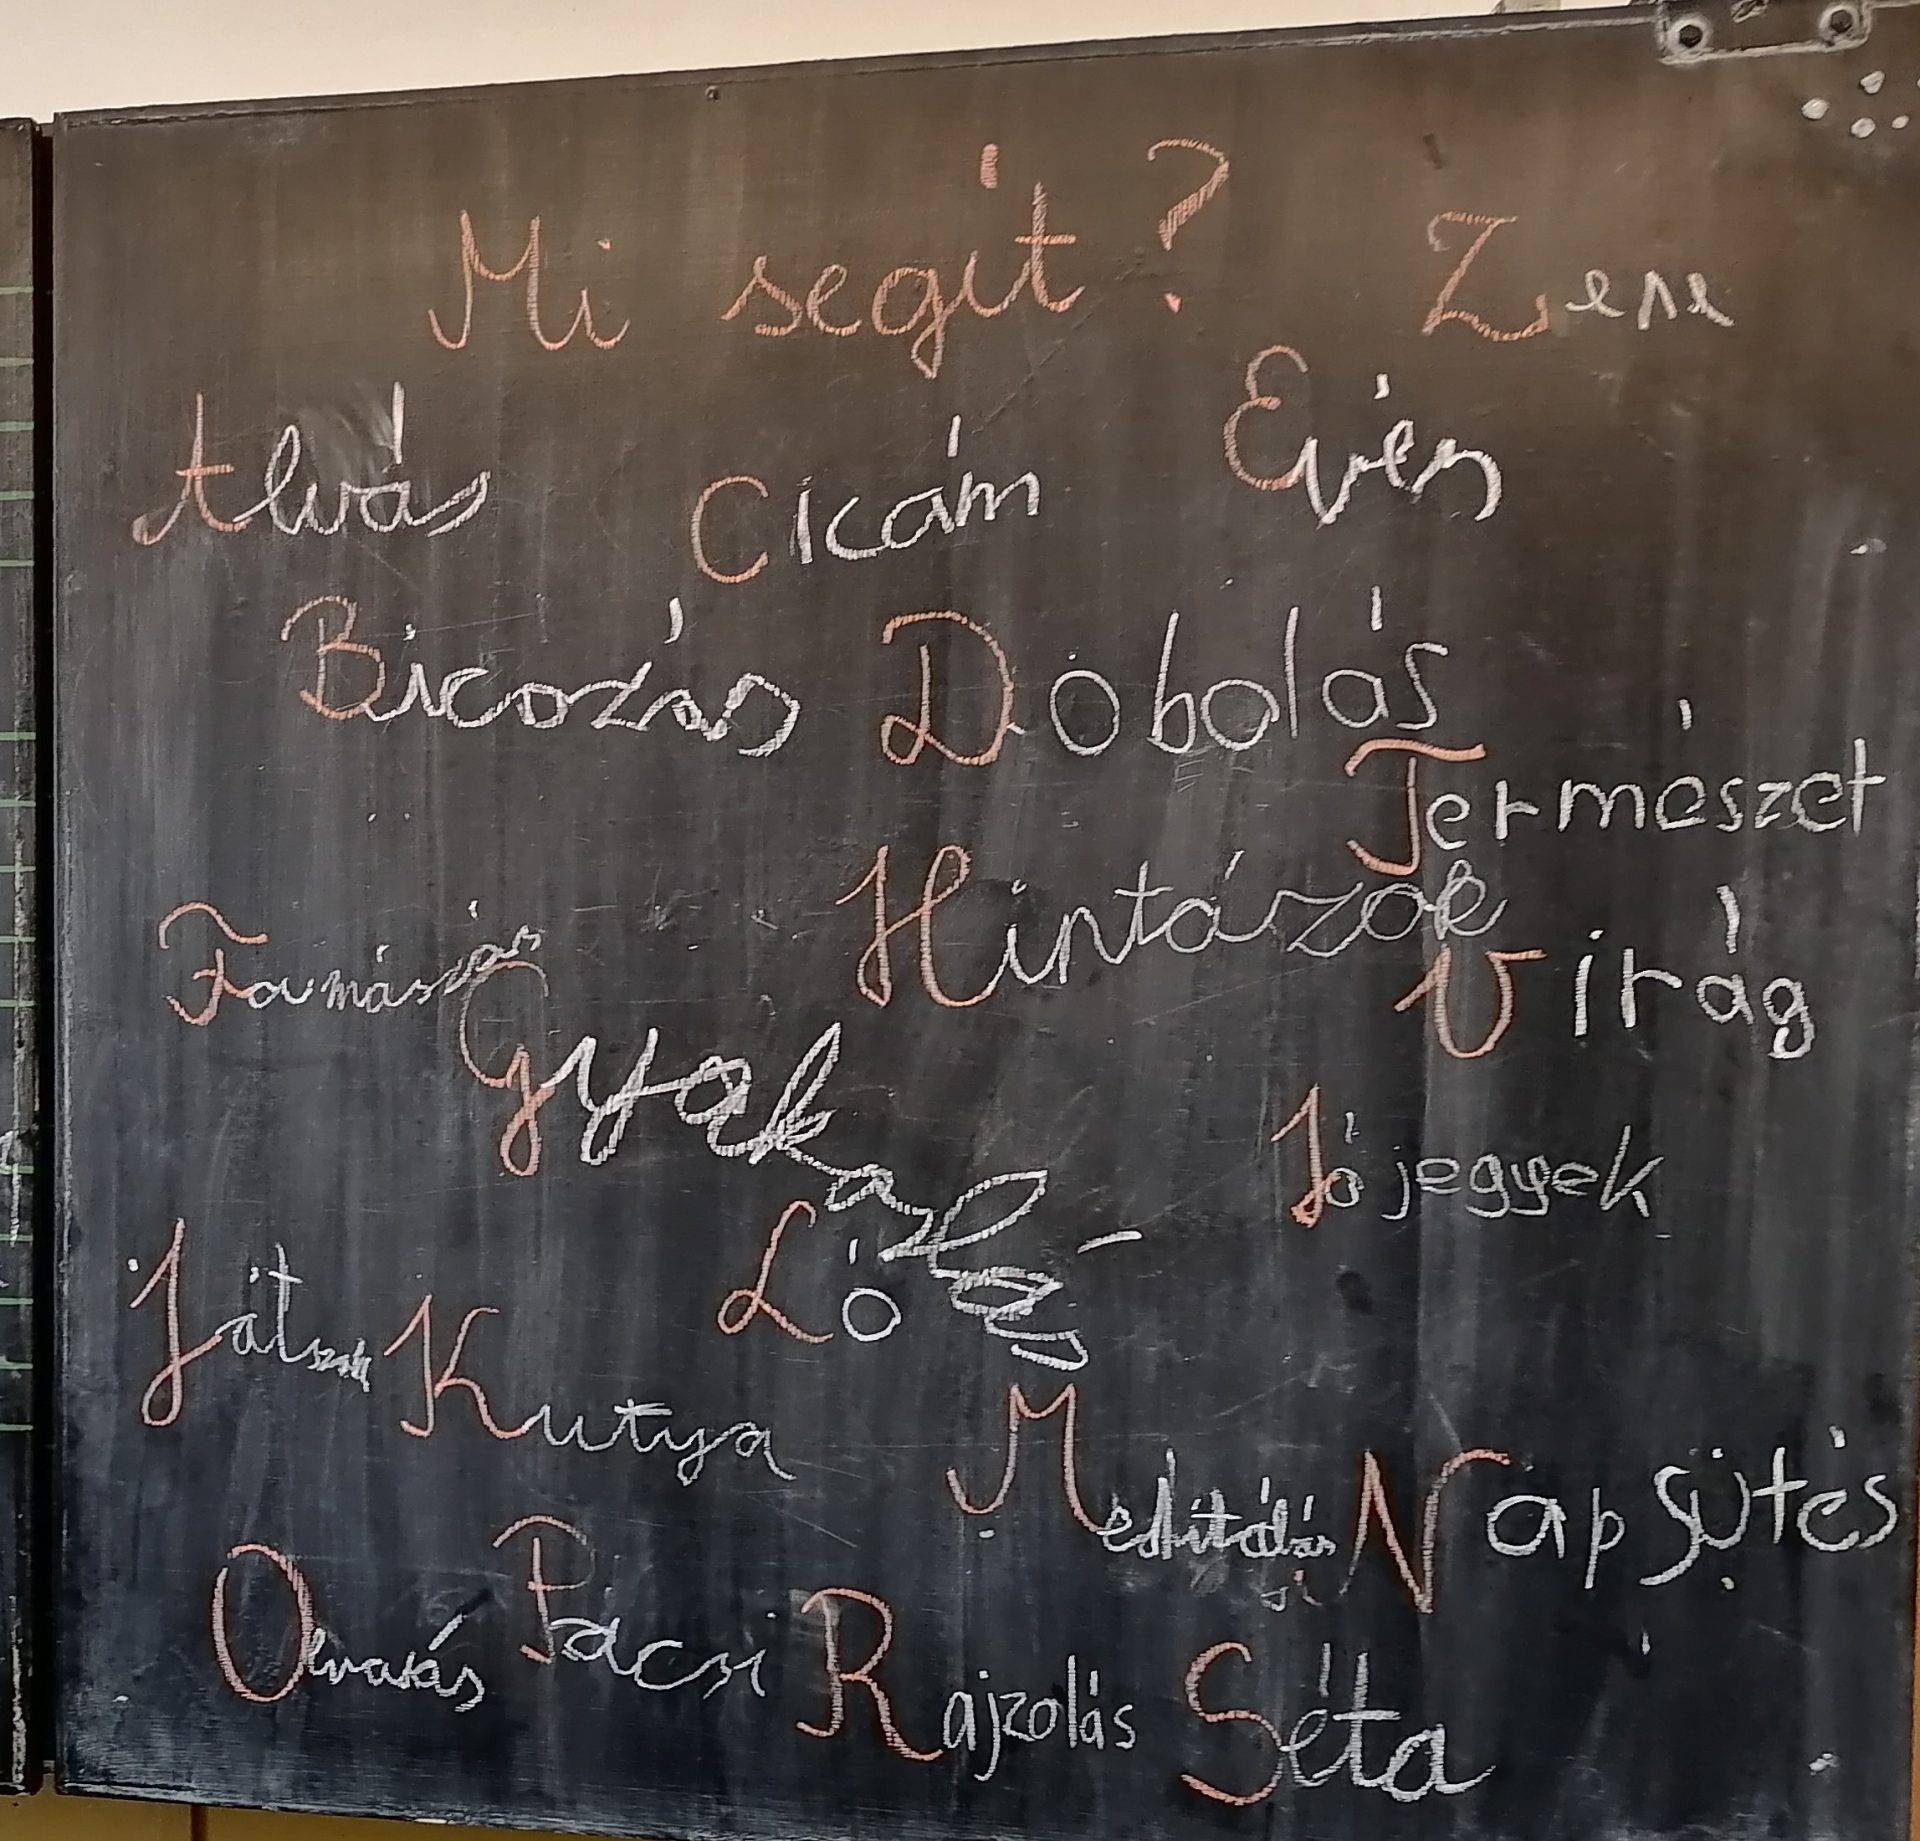 Mi segít?
Zene
Alvás
Cicám
Evés
Bicozás
Dobolás
Természet
Famászás
Hintázok
Virág
Gyakazlás
Jó jegyek
Játszok
Kutya
Ló
Meditálás
Napsütés
Olvasás
Pacsi
Rajzolás
Séta